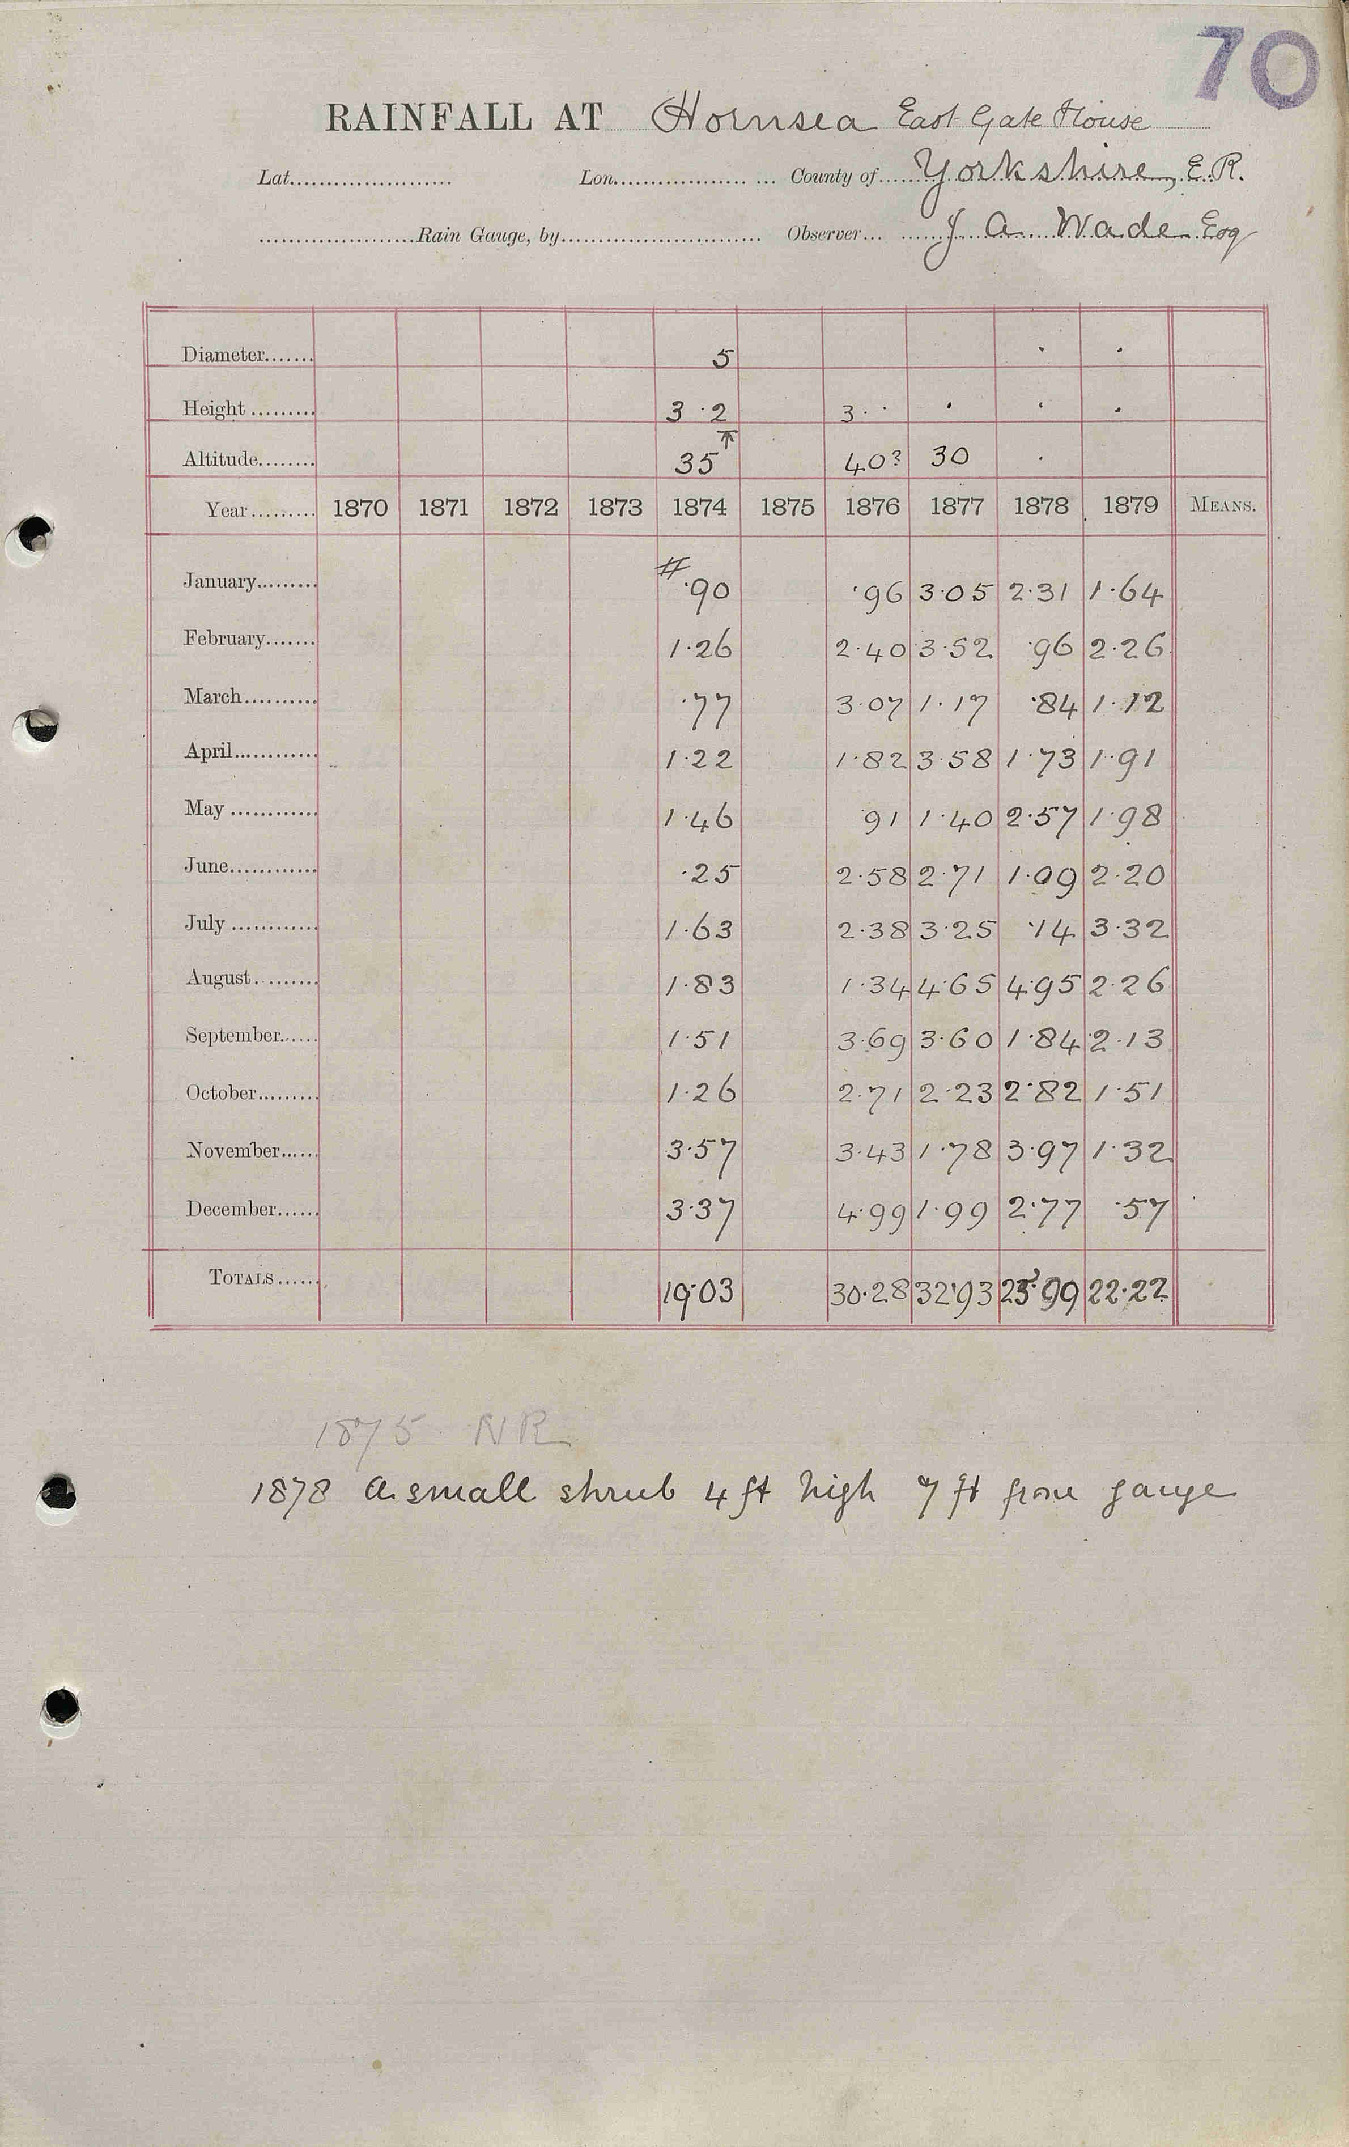 70
RAINFALL AT Hornsea East Gate House
Lat. Lon. County of Yorkshire, E.R.
Rain Gauge, by Observer J A Wade Esq
Diameter 5 · ·
Height 3 · 2 3 · · · · ·
Altitude 35 40? 30 ·
Year 1870 1871 1872 1873 1874 1875 1876 1877 1878 1879 MEANS.
January # ·90 ·96 3·05 2·31 1·64
February 1·26 2·40 3·52 ·96 2·26
March ·77 3·07 1·17 ·84 1·12
April 1·22 1·82 3·58 1·73 1·91
May 1·46 91 1·40 2·57 1·98
June ·25 2·58 2·71 1·09 2·20
July 1·63 2·38 3·25 ·14 3·32
August 1·83 1·34 4·65 4·95 2·26
September 1·51 3·69 3·60 1·84 2·13
October 1·26 2·71 2·23 2·82 1·51
November 3·57 3·43 1·78 3·97 1·32
December 3·37 4·99 1·99 2·77 ·57
TOTALS 19·03 30·28 32·93 25·99 22·22
1875 NR
1878 A small shrub 4 ft high 7 ft from gauge